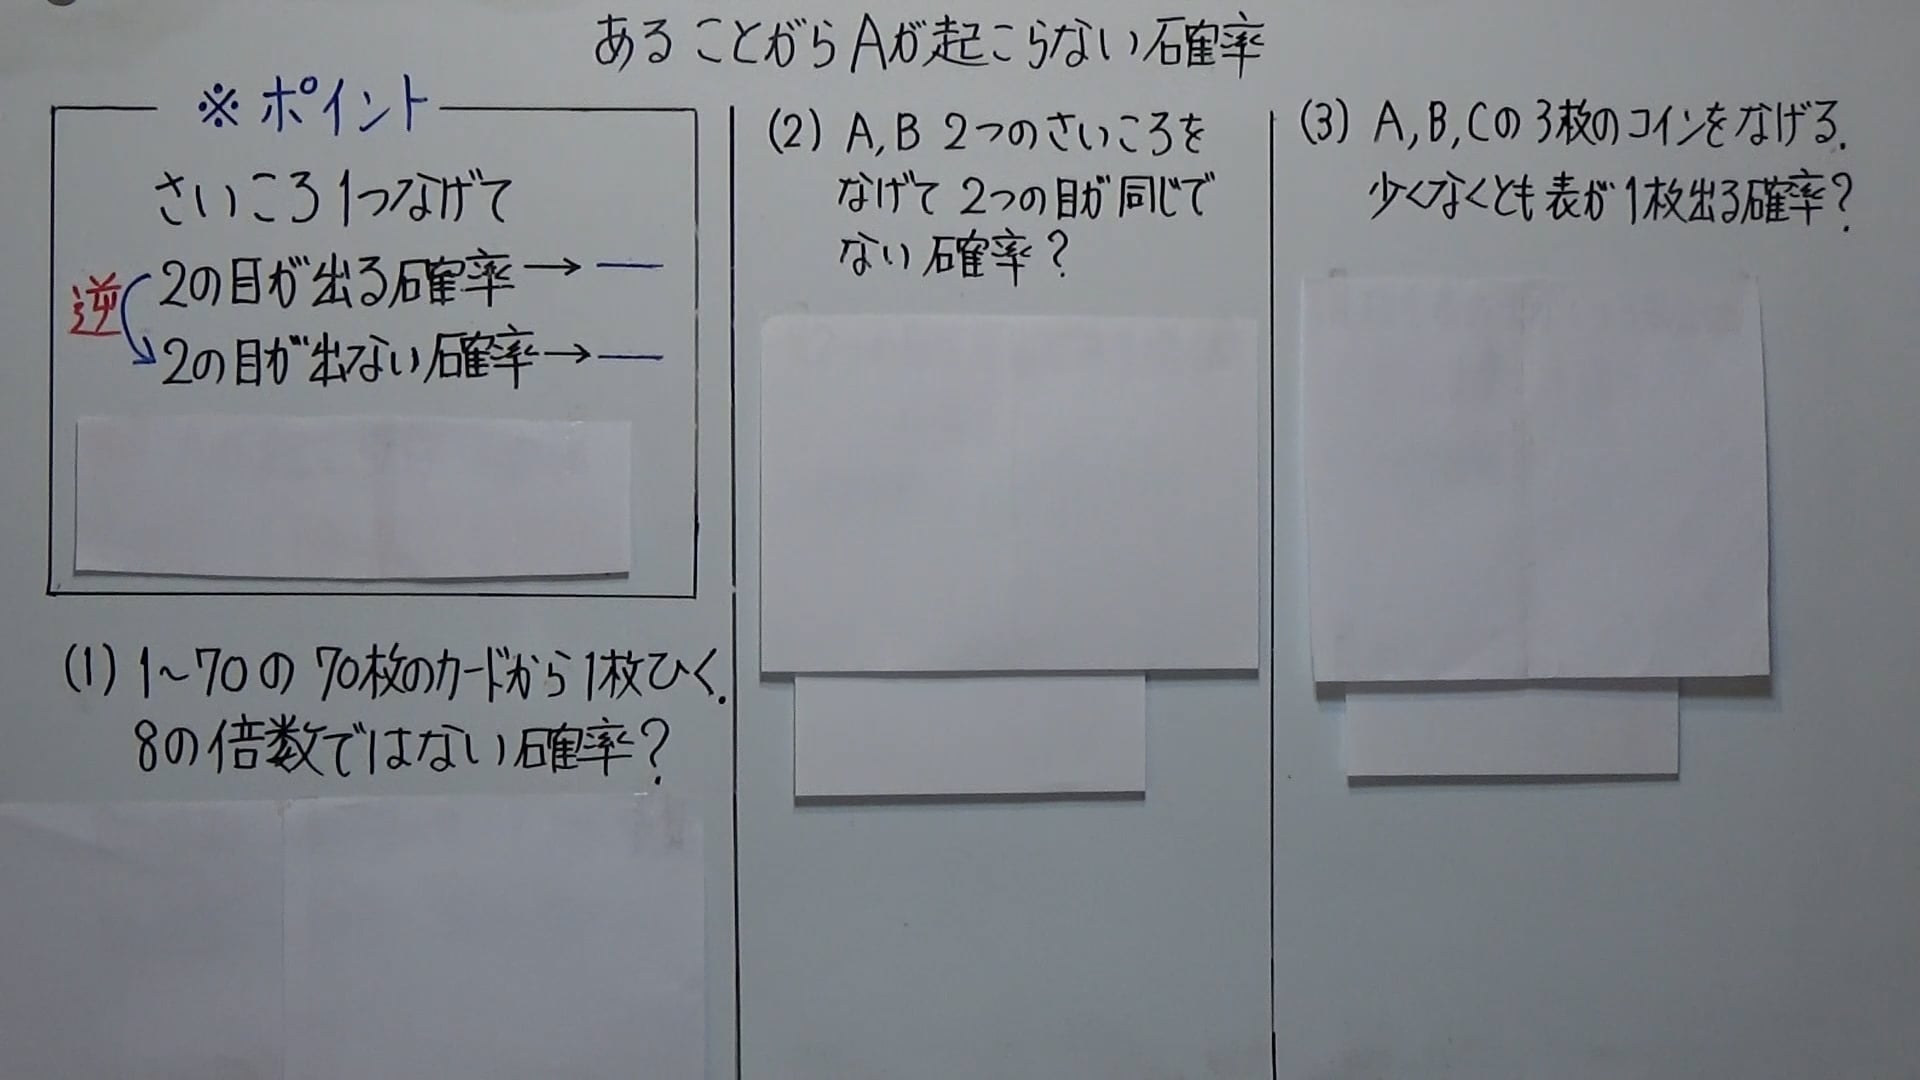 あることがらAが起こらない確率
※ポイント
さいころ1つなげて
2の目が出る確率→
逆
2の目が出ない確率→
(1) 1~70の70枚のカードから1枚ひく.
8の倍数ではない確率?
(2) A,B 2つのさいころを
なげて 2つの目が同じで
ない確率?
(3) A,B,Cの3枚のコインをなげる.
少くなくとも表が1枚出る確率?